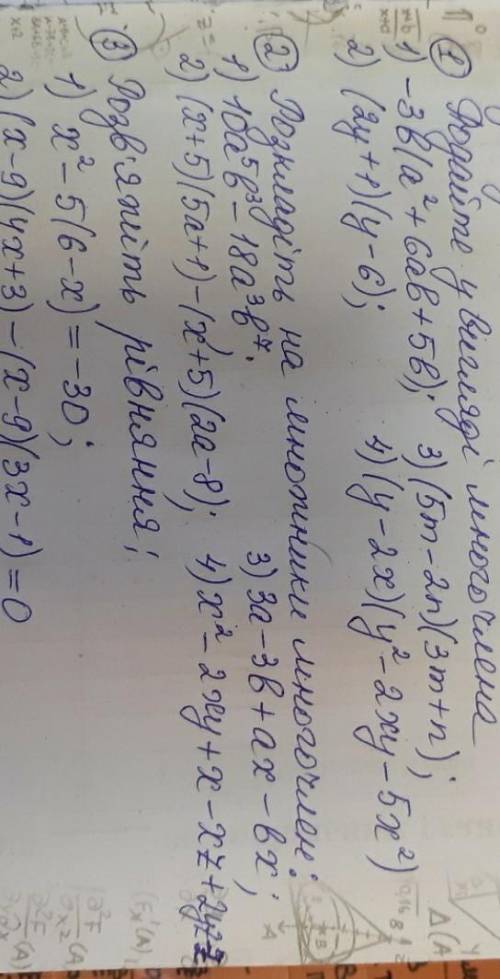 ① Подайте у вигляді многочлена
1) -3b(a² + 6ab + 5b); 3) (5m - 2n)(3m + n);
2) (2y + 1)(y - 6); 4) (y - 2x)(y² - 2xy - 5x²)
② Розкладіть на множники многочлен:
1) 10a⁵b³ - 18a³b⁷; 3) 3a - 3b + ax - bx;
2) (x+5)(5a+1) - (x+5)(2a-8); 4) x² - 2xy + x - xz + 2yz - z
③ Розв'яжіть рівняння;
1) x² - 5(6 - x) = -30;
2) (x-9)(4x+3) - (x-9)(3x-1) = 0